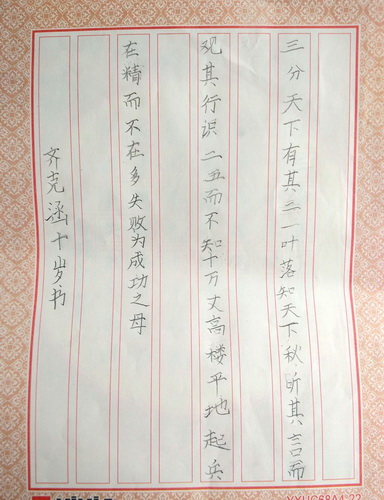 三分天下有其二一叶落知天下秋听其言而
观其行识二五而不知十万丈高楼平地起兵
在精而不在多失败为成功之母
齐克涵十岁书